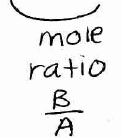 mole
ratio
B
A